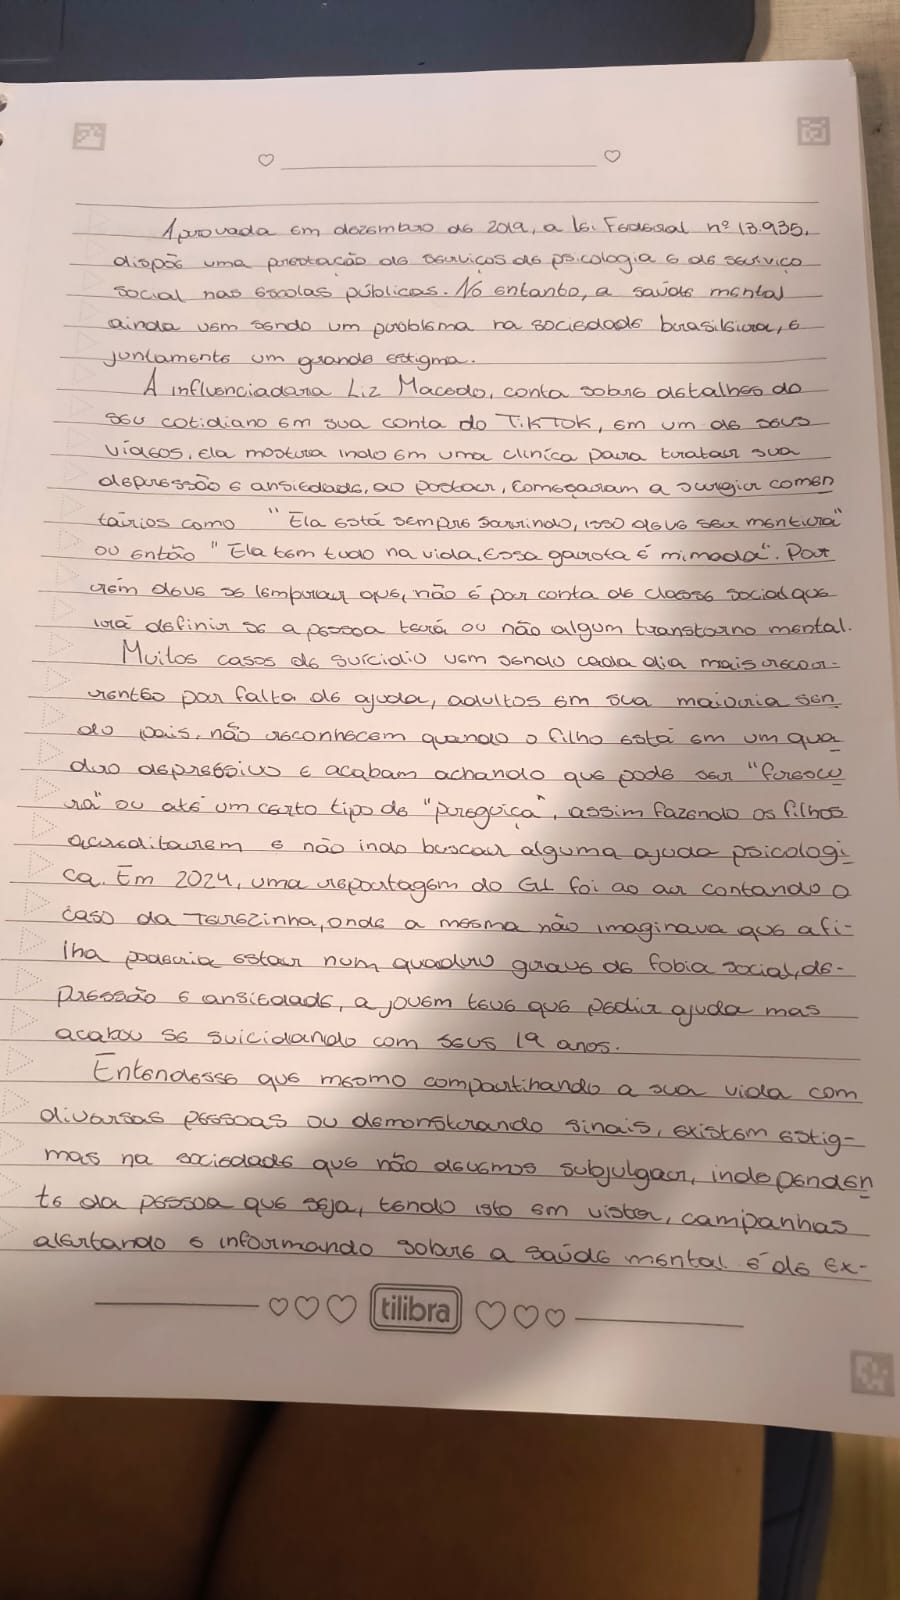 Aprovada em dezembro de 2019, a lei Federal nº 13.935,
dispõe uma prestação de serviços de psicologia e de serviço
social nas escolas públicas. No entanto, a saúde mental
ainda vem sendo um problema na sociedade brasileira, e
juntamente um grande estigma.
A influenciadora Liz Macedo, conta sobre detalhes do
seu cotidiano em sua conta do TikTok, em um de seus
vídeos, ela mostra indo em uma clínica para tratar sua
depressão e ansiedade, ao postar, começaram a surgir comen
tários como "Ela está sempre sorrindo, isso deve ser mentira"
ou então "Ela tem tudo na vida, essa garota é mimada". Por
rém deve se lembrar que, não é por conta de classe social que
irá definir se a pessoa terá ou não algum transtorno mental.
Muitos casos de suícidio vem sendo cada dia mais recor-
rentes por falta de ajuda, adultos em sua maioria sen
do pais, não reconhecem quando o filho está em um qua
dro depressivo e acabam achando que pode ser "frescu
ra" ou até um certo tipo de "preguiça", assim fazendo os filhos
acreditarem e não indo buscar alguma ajuda psicologi
ca. Em 2024, uma reportagem do G1 foi ao ar contando o
caso da Terezinha, onde a mesma não imaginava que a fi-
lha poderia estar num quadro grave de fobia social, de-
pressão e ansiedade, a jovem teve que pedir ajuda mas
acabou se suicidando com seus 19 anos.
Entendesse que mesmo compartilhando a sua vida com
diversas pessoas ou demonstrando sinais, existem estig-
mas na sociedade que não devemos subjulgar, independen
te da pessoa que seja, tendo isto em vista, campanhas
alertando e informando sobre a saúde mental é de ex-
tilibra